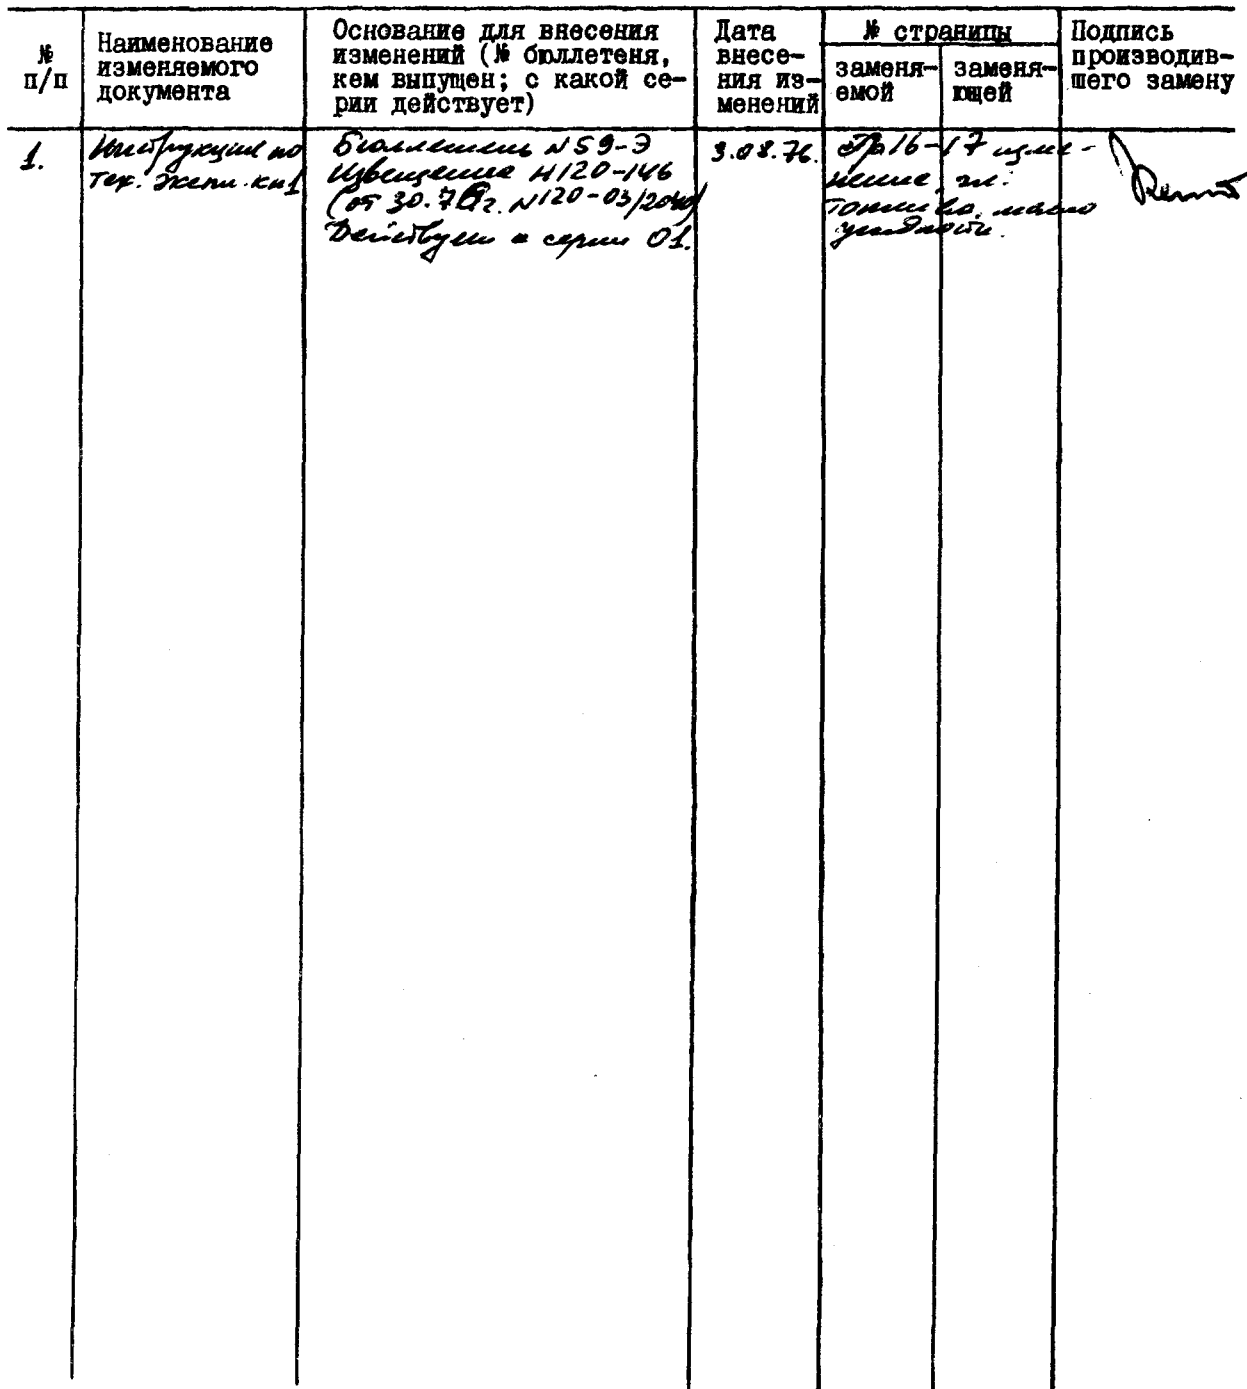 №
п/п
Наименование
изменяемого
документа
Основание для внесения
изменений (№ бюллетеня,
кем выпущен; с какой се-
рии действует)
Дата
внесе-
ния из-
менений
№ страницы
заменя-
емой
заменя-
ющей
Подпись
производив-
шего замену
1.
Инструкция по
тех. экспл. кн1
Бюллетень №59-Э
Извещение Н120-146
(от 30. г. №120-03/2040)
Действует с серии 01.
3.08.76.
стр16-17 изме-
нение гл.
Топливо, масло